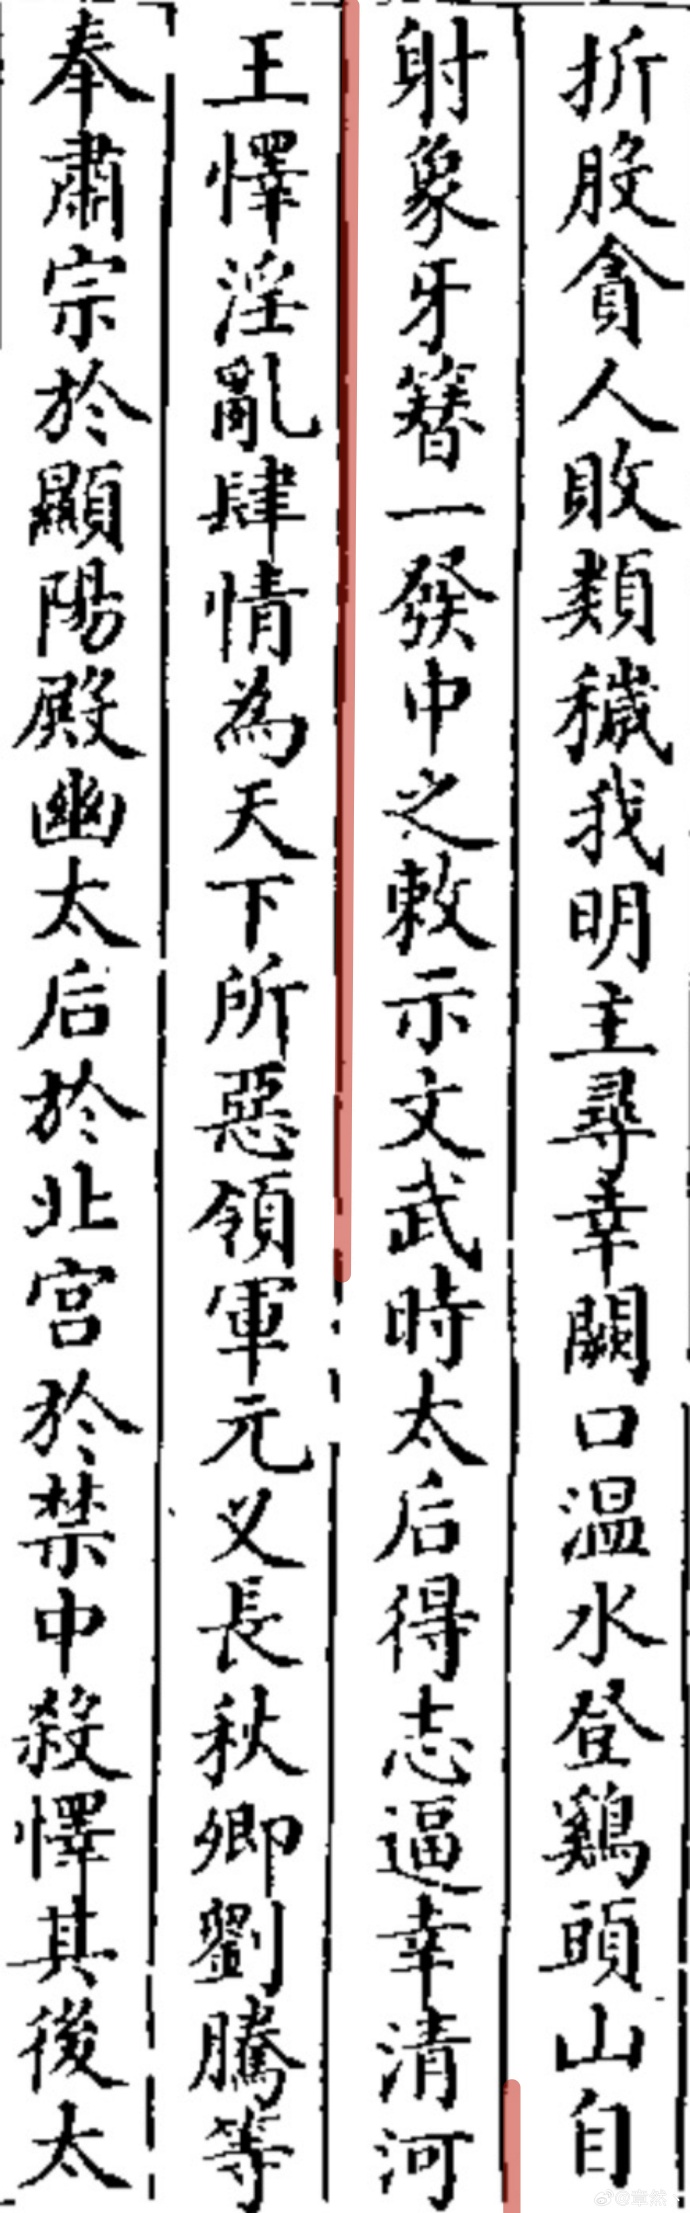 折股貪人敗類穢我明主尋幸闕口温水登鷄頭山自
射象牙簪一發中之敕示文武時太后得志逼幸清河
王懌淫亂肆情為天下所惡領軍元义長秋卿劉騰等
奉肅宗於顯陽殿幽太后於北宮於禁中殺懌其後太
@章然